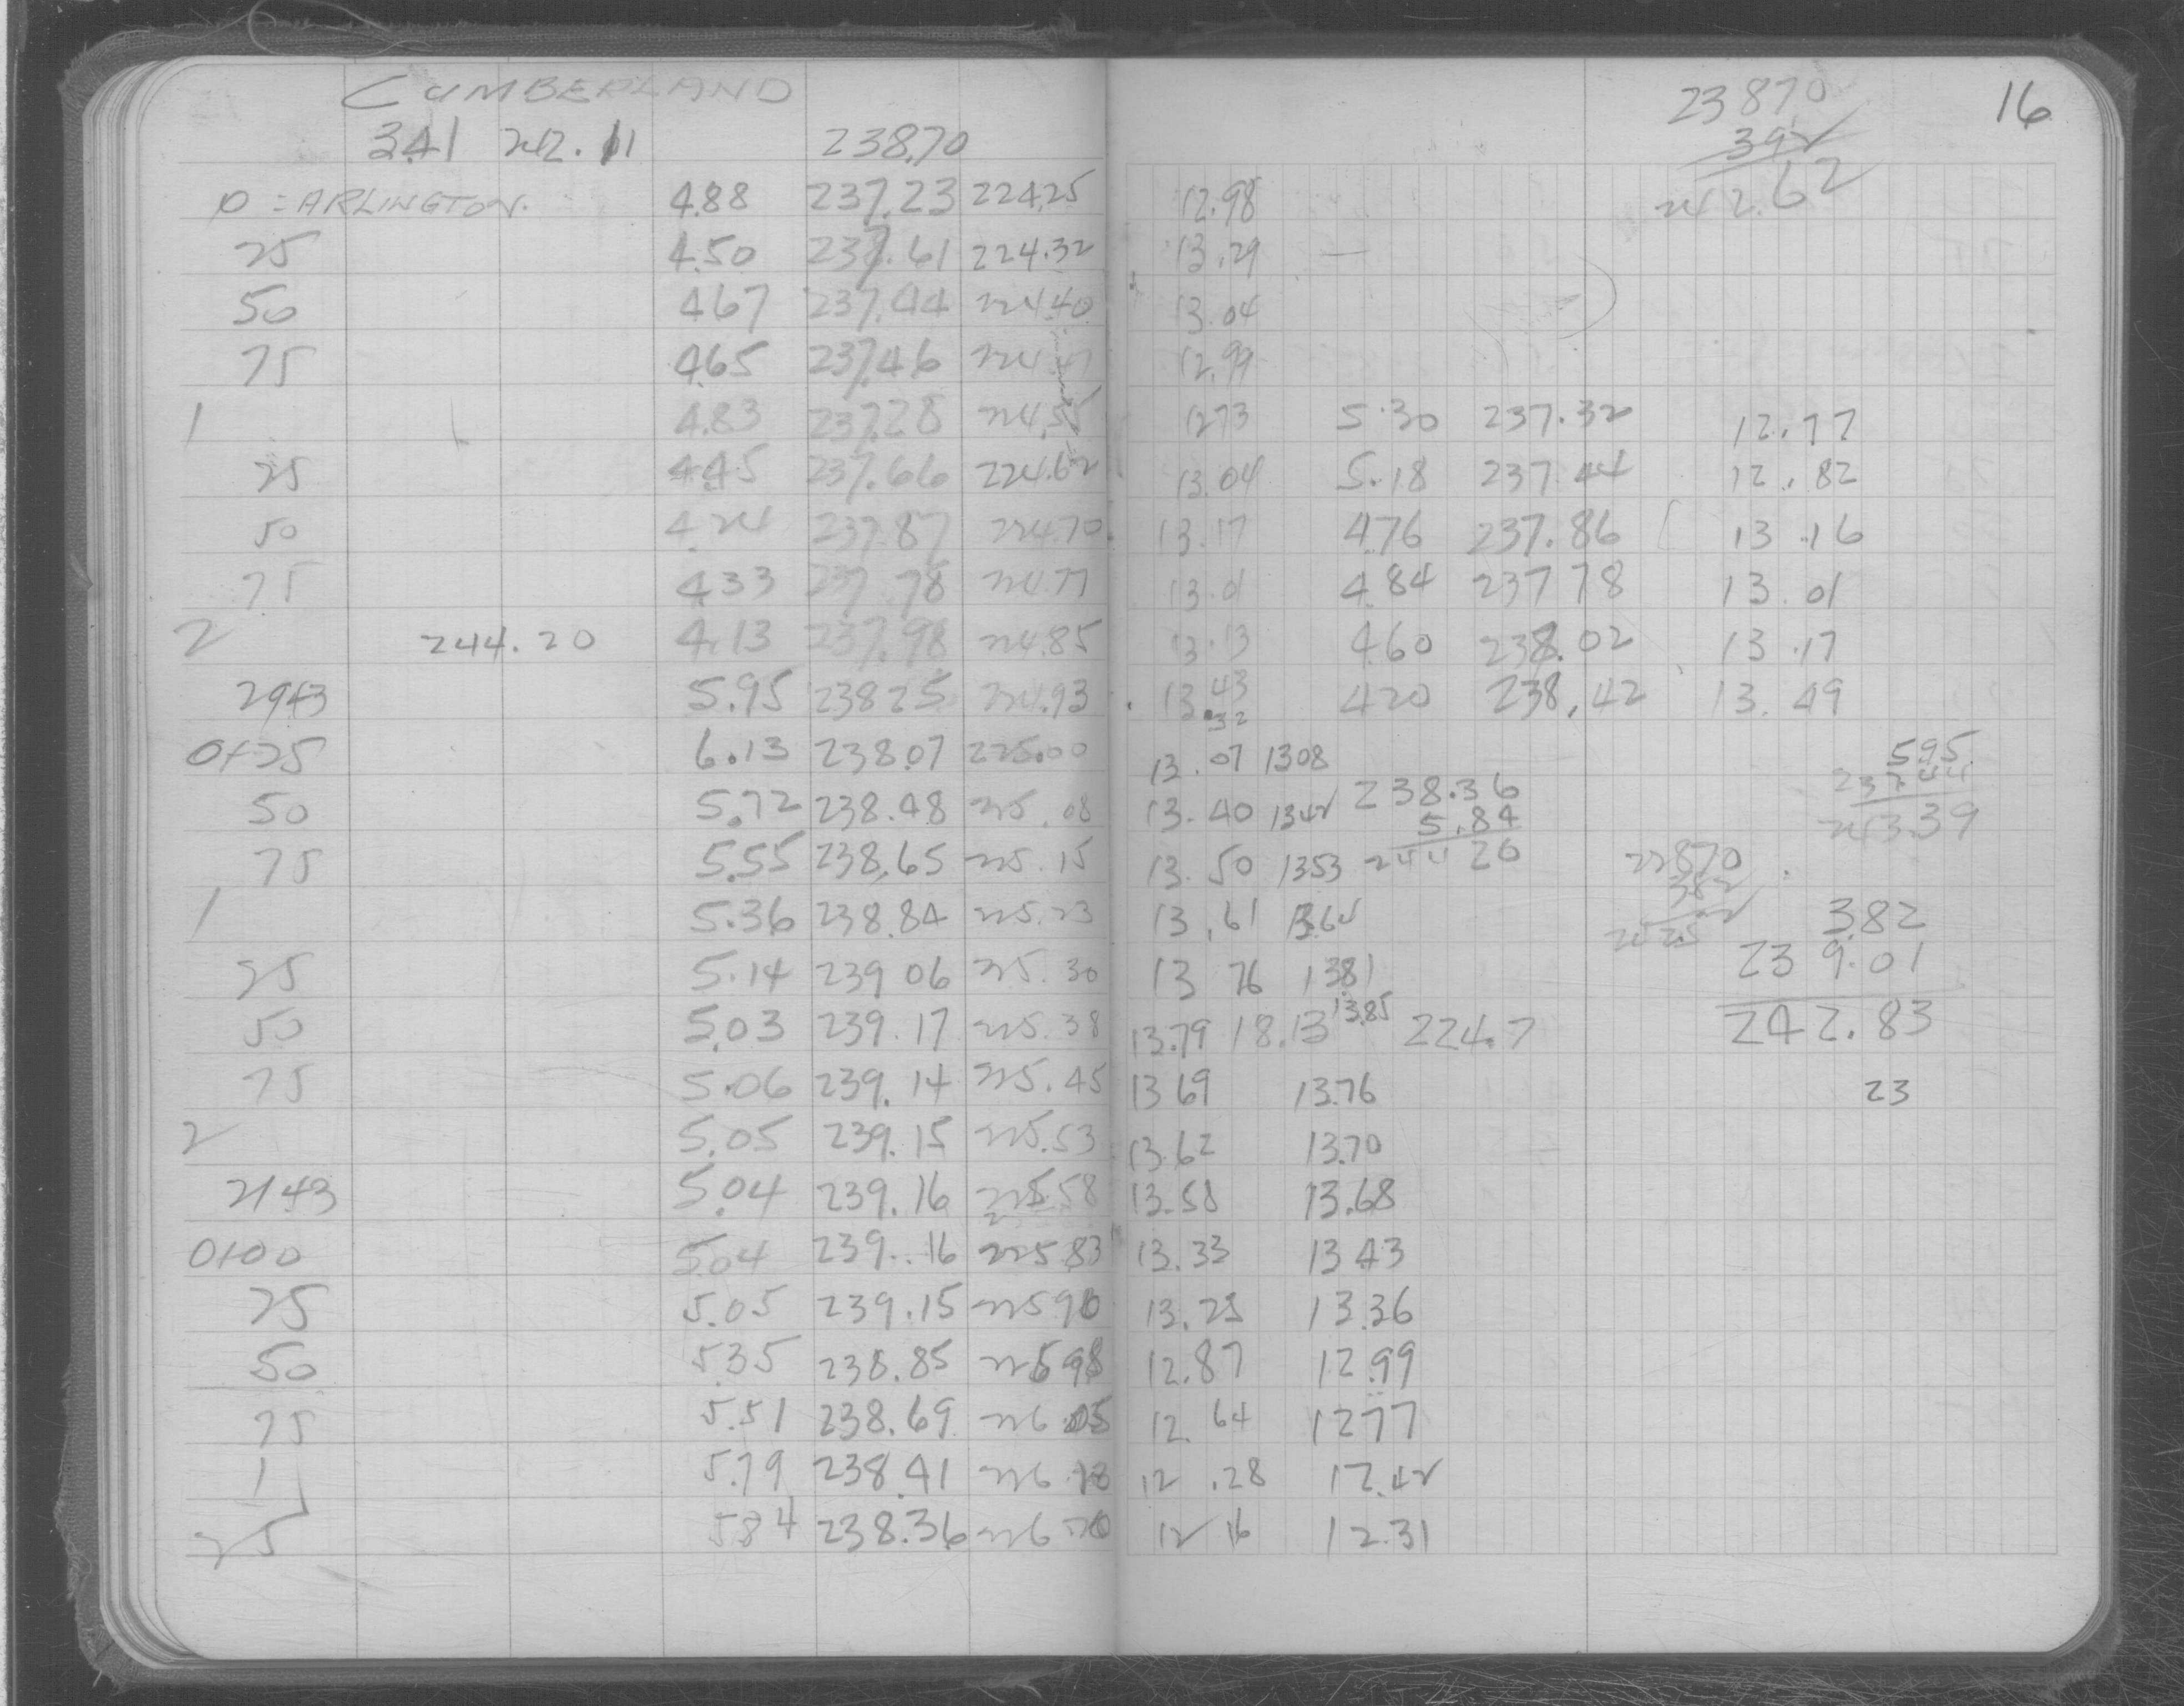 CUMBERLAND 23870 16
3.41 242.11 238.70 392
0 = ARLINGTON. 4.88 237.23 224.25 12.98 242.62
25 4.50 237.61 224.32 13.29 —
50 4.67 237.44 224.40 13.04
75 4.65 237.46 12.99
1 4.83 237.28 224.55 1273 5.30 237.32 12.77
25 4.45 237.66 224.62 13.04 5.18 237.44 12.82
50 4.24 237.87 224.70 13.17 4.76 237.86 13.16
75 4.33 237.78 224.77 13.01 4.84 237 78 13.01
2 244.20 4.13 237.98 224.85 13.13 4.60 238.02 13.17
2943 5.95 238 25 224.93 13.43 420 238.42 13.49
32
0+25 6.13 238.07 225.00 13.07 1308 5.95
50 5.72 238.48 225.08 13.40 1342 238.36 237 44
5.84 243.39
75 5.55 238.65 225.15 13.50 1353 244 20
1 5.36 238.84 225.23 13.61 13.64 3.82
25 5.14 239 06 225.30 13 76 1381 239.01
50 5.03 239.17 225.38 13.79 18.13 13.85 224.7 242.83
75 5.06 239.14 225.45 13 69 13.76 23
2 5.05 239.15 225.53 13.62 13.70
2143 5.04 239.16 225.58 13.58 13.68
0+00 5.04 239.16 225 83 13.33 13 43
25 5.05 239.15 225 90 13.25 13.36
50 5.35 238.85 225 98 12.87 12.99
75 5.51 238.69 226 05 12.64 1277
1 5.79 238.41 226 13 12.28 12.42
25 5.84 238.36 226 20 12 16 12.31